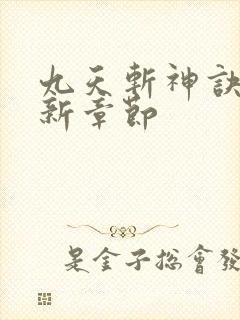 九天斬神訣
新章節
是金子总會發